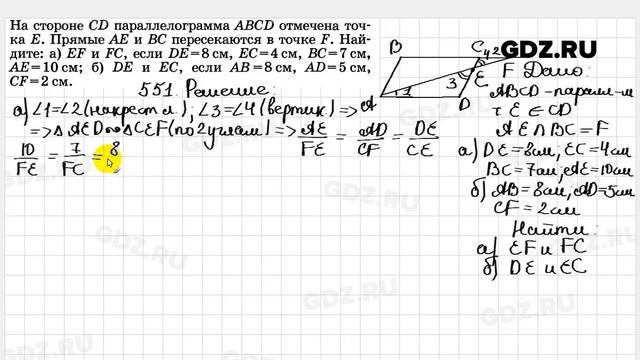 На стороне CD параллелограмма ABCD отмечена точ-
ка E. Прямые AE и BC пересекаются в точке F. Най-
дите: а) EF и FC, если DE=8 см, EC=4 см, BC=7 см,
AE=10 см; б) DE и EC, если AB=8 см, AD=5 см,
CF=2 см.
551. Решение:
а) ∠1=∠2(накрест л); ∠3=∠4(вертик) =>
=> △ AED ∾ △CEF(по 2 углам) => AE/FE = AD/CF = DE/CE
10/FE = 7/FC = 8
B
C
4 2
3
E
F
A
1
D
GDZ.RU
Дано:
ABCD – паралл-м
т E ∈ CD
AE ∩ BC = F
а) DE = 8см, EC = 4см
BC = 7см, AE = 10см
б) AB = 8см, AD = 5см
CF = 2см
Найти:
а) EF и FC
б) DE и EC
GDZ.RU
GDZ.RU
GDZ.RU